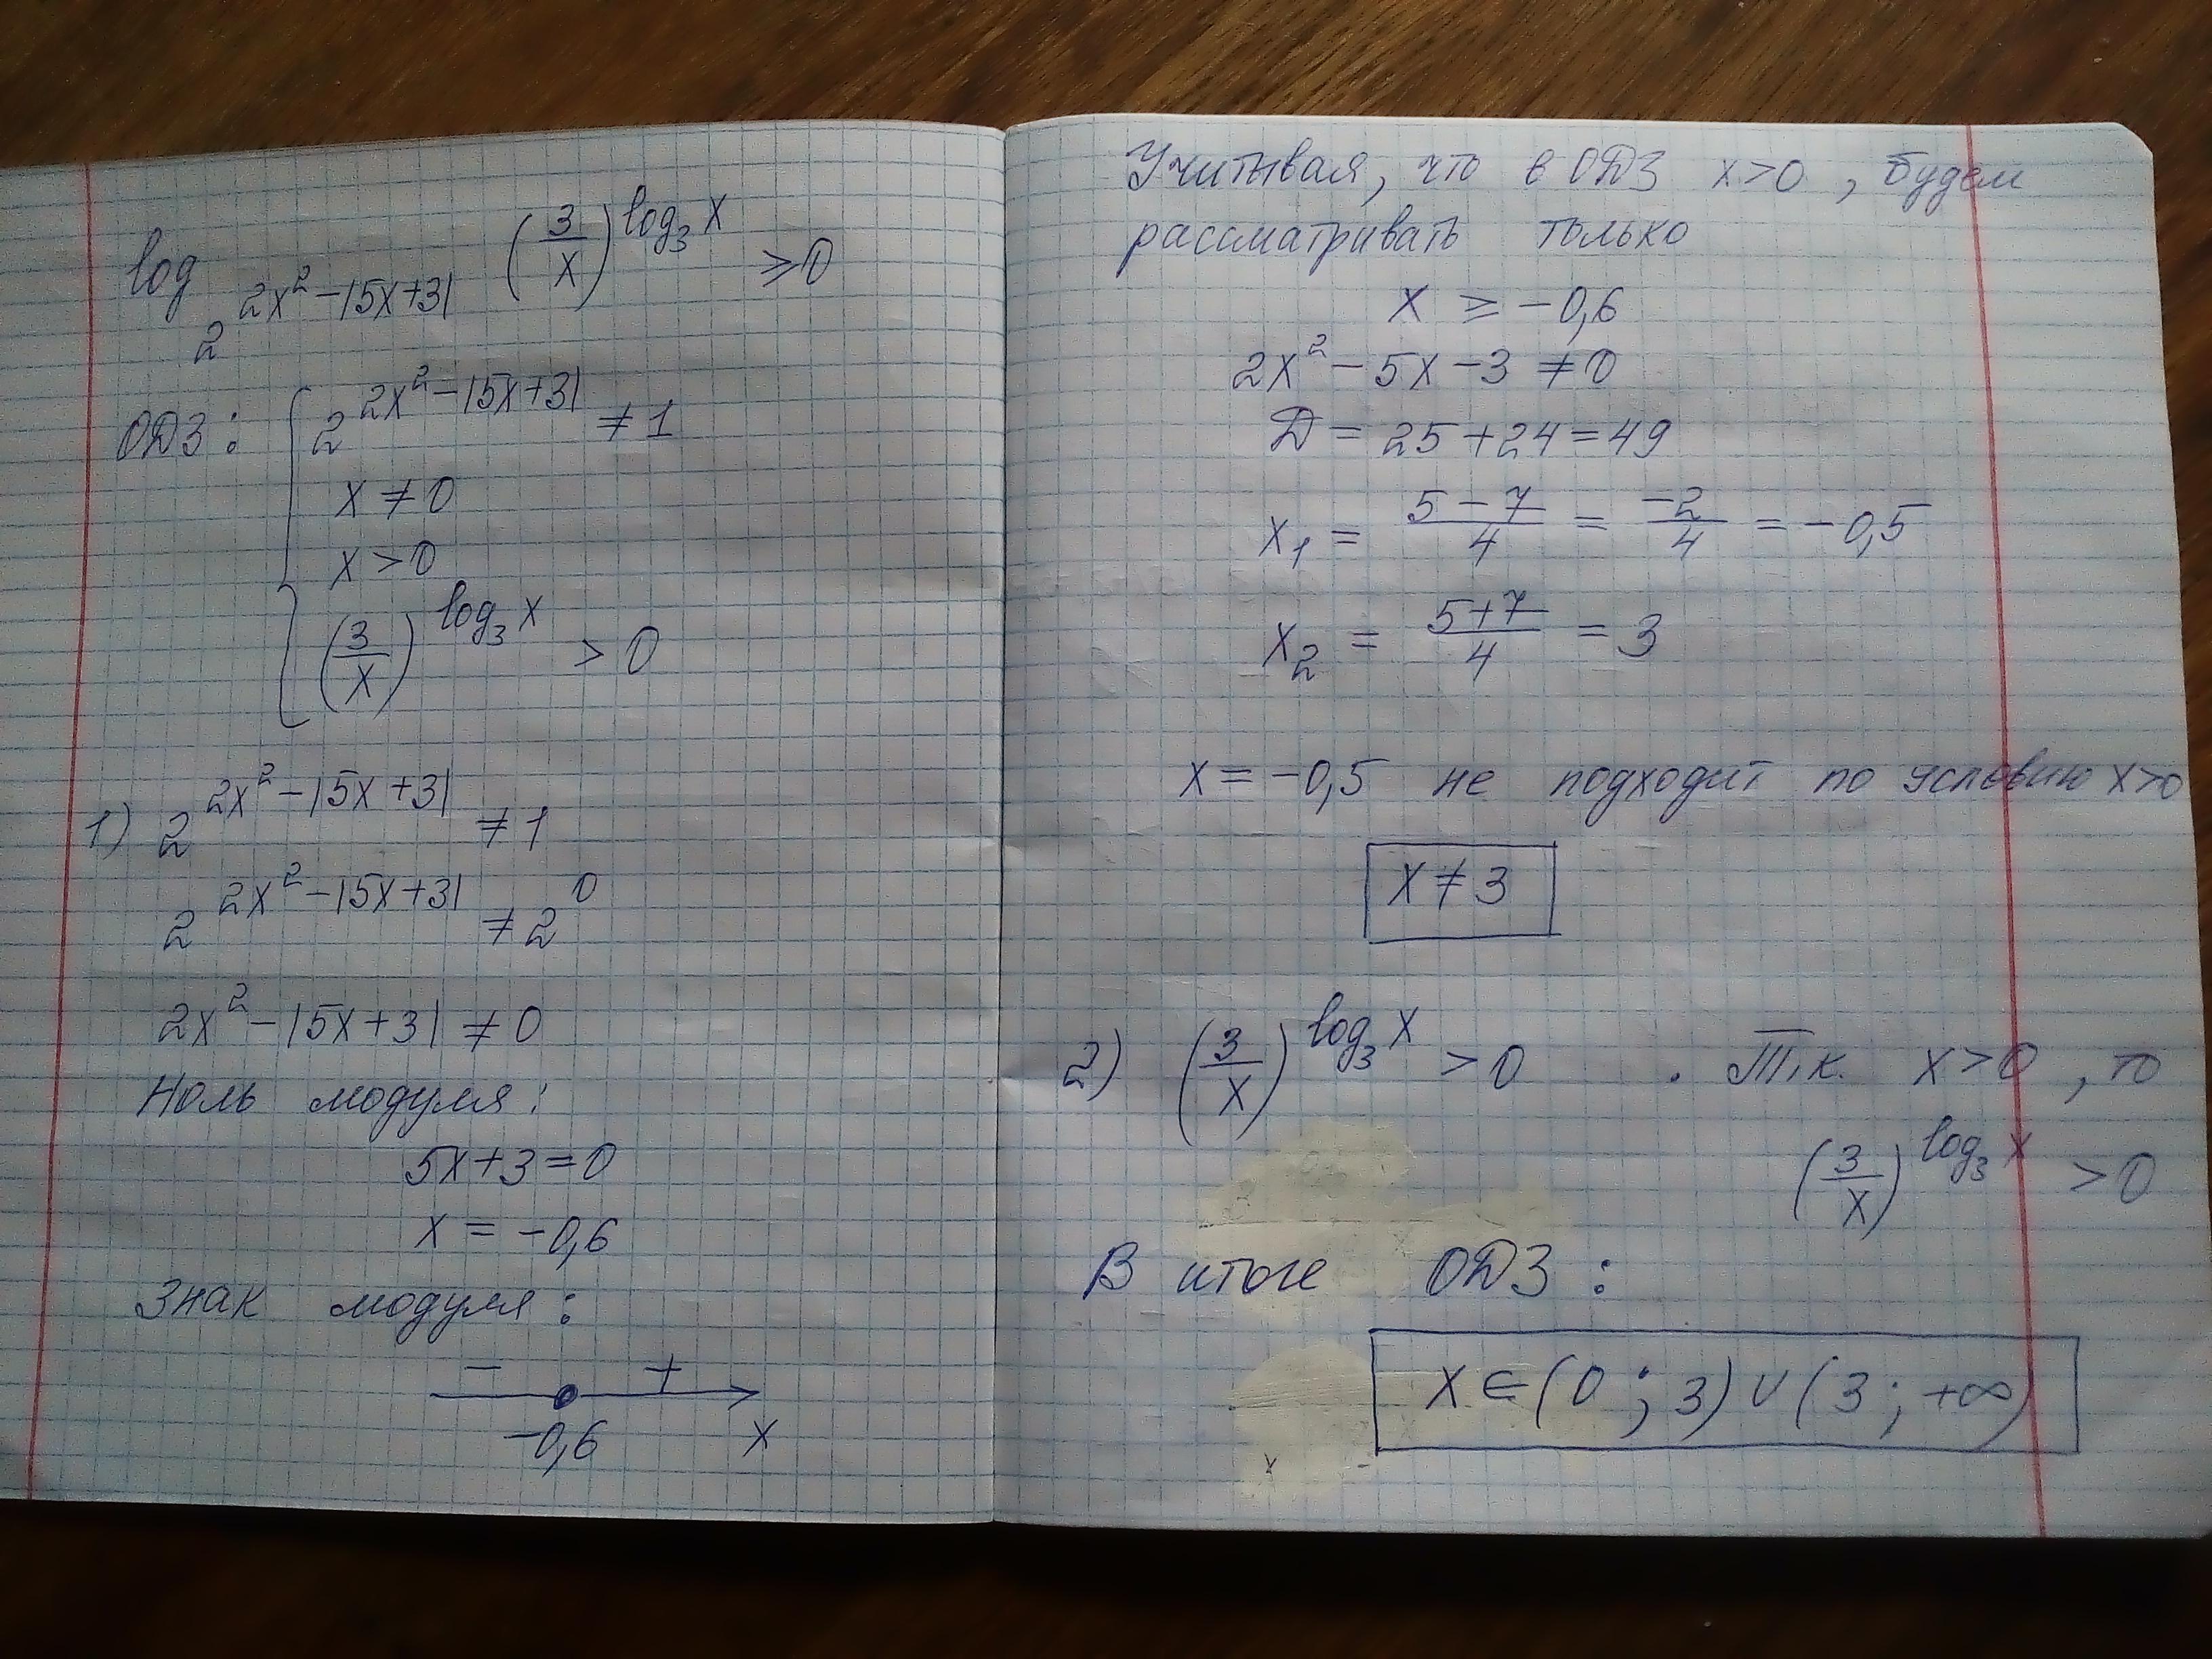 log_{2^{2x²-|5x+3|}} (3/x)^{log₃x} ≥ 0
ОДЗ: { 2^{2x²-|5x+3|} ≠ 1
x ≠ 0
x > 0
(3/x)^{log₃x} > 0
1) 2^{2x²-|5x+3|} ≠ 1
2^{2x²-|5x+3|} ≠ 2⁰
2x²-|5x+3| ≠ 0
Ноль модуля:
5x+3=0
x = -0,6
Знак модуля:
- +
-0,6 x
Учитывая, что в ОДЗ x>0, будем
рассматривать только
x ≥ -0,6
2x² - 5x - 3 ≠ 0
Д = 25 + 24 = 49
x₁ = (5-7)/4 = -2/4 = -0,5
x₂ = (5+7)/4 = 3
x = -0,5 не подходит по условию x>0
x ≠ 3
2) (3/x)^{log₃x} > 0 . Т.к. x>0, то
(3/x)^{log₃x} > 0
В итоге ОДЗ:
x ∈ (0; 3) ∪ (3; +∞)